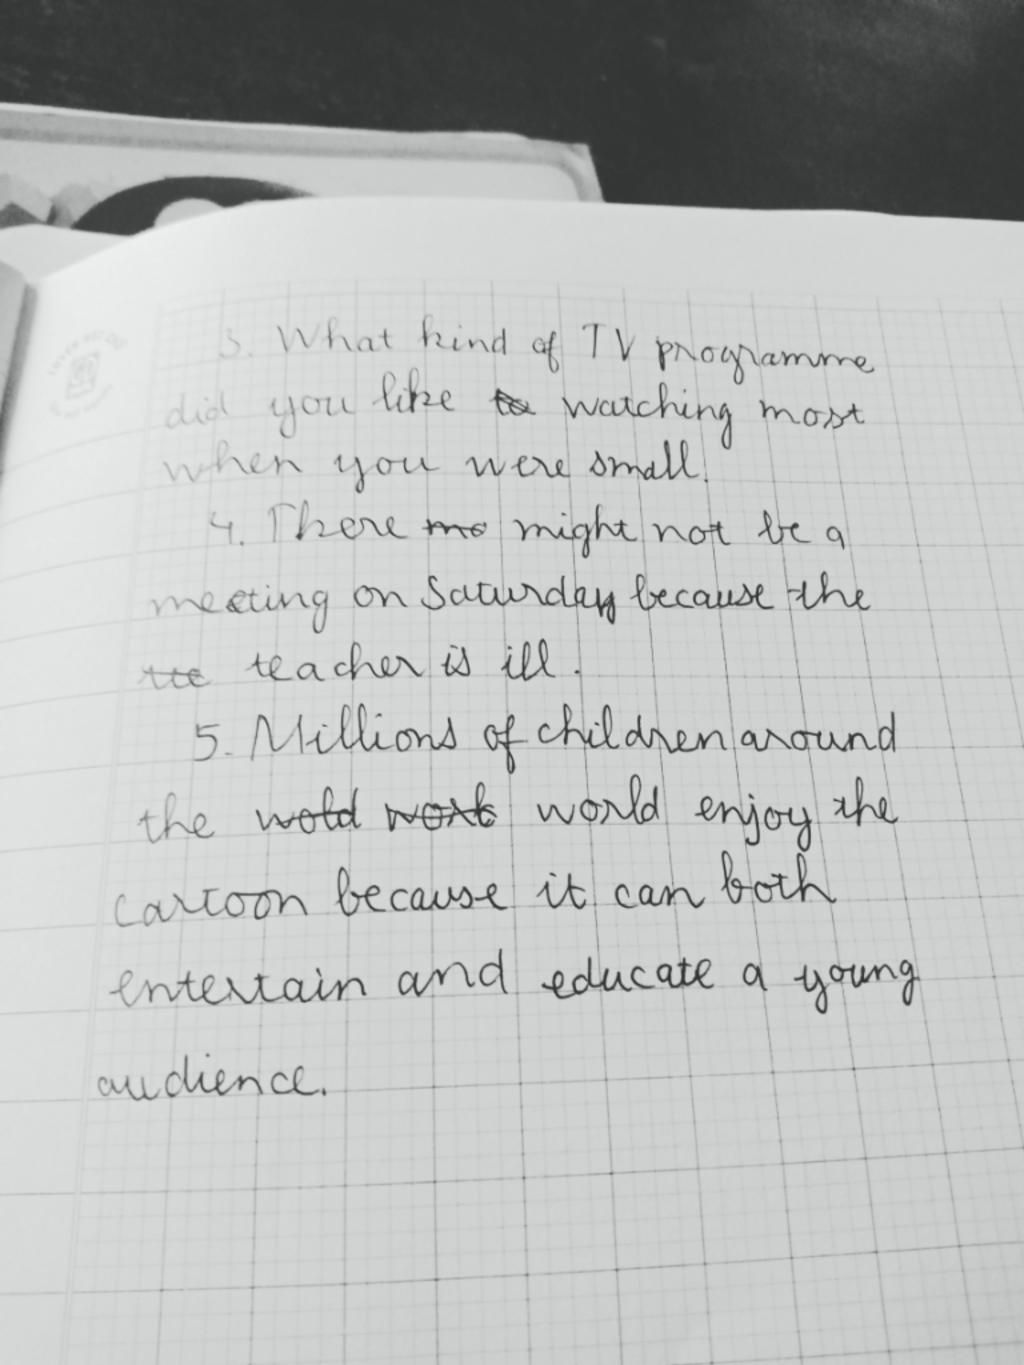 3. What kind of TV programme
did you like watching most
when you were small.
4. There might not be a
meeting on Saturday because the
teacher is ill.
5. Millions of children around
the wold work world enjoy the
cartoon because it can both
entertain and educate a young
audience.